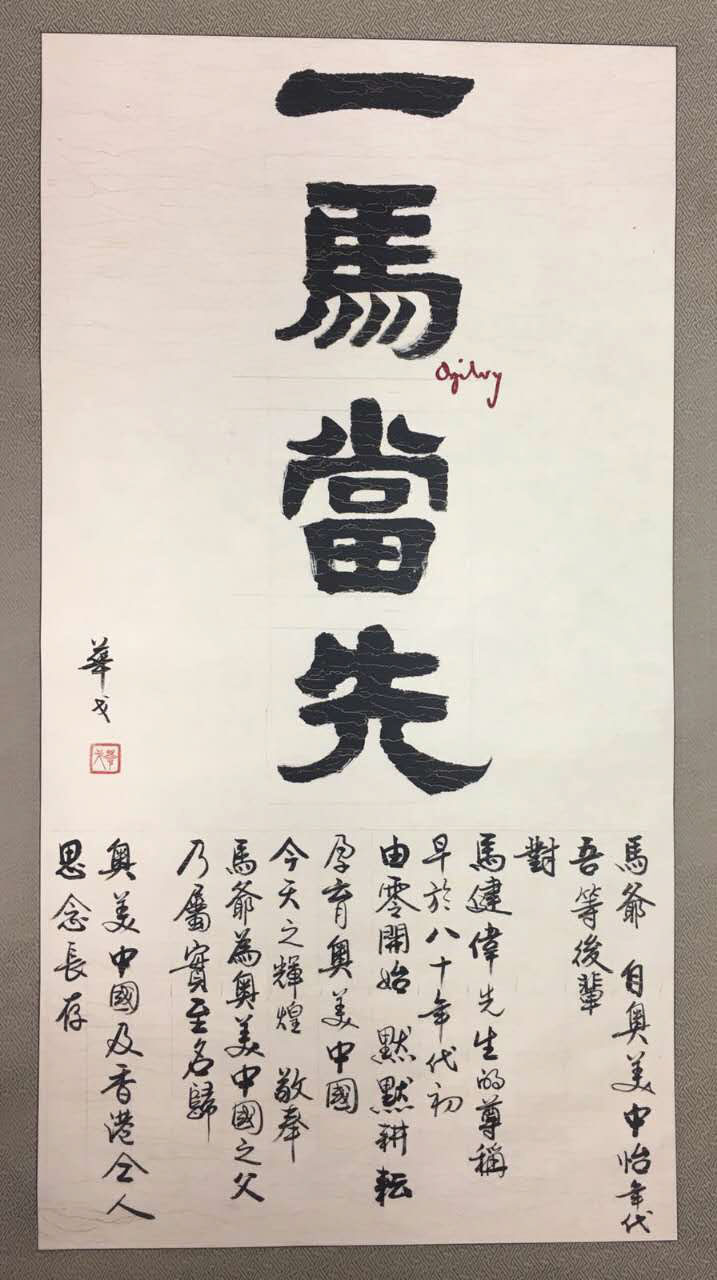 一馬當先
Ogilvy
華戈
馬爺 自奥美中怡年代
吾等後輩
對
馬健偉先生的尊稱
早於八十年代初
由零開始 默默耕耘
孕育奥美中國
今天之輝煌 敬奉
馬爺為奥美中國之父
乃屬實至名歸
奥美中國及香港仝人
思念長存